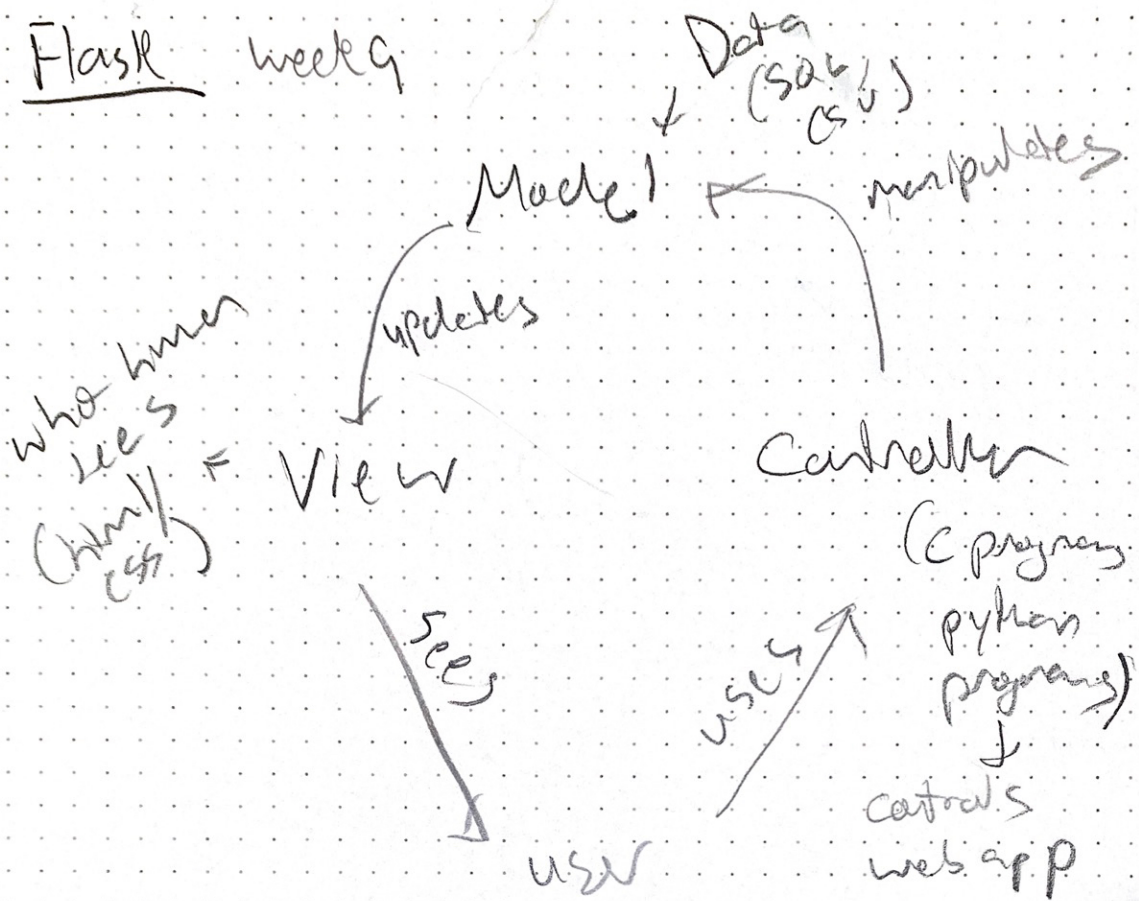 Flask week 9
Data
(SQL
CSV)
Model
manipulates
updates
what human
sees
(html/
css)
View
Controller
(C program
python
programs)
controls
web app
sees
uses
user